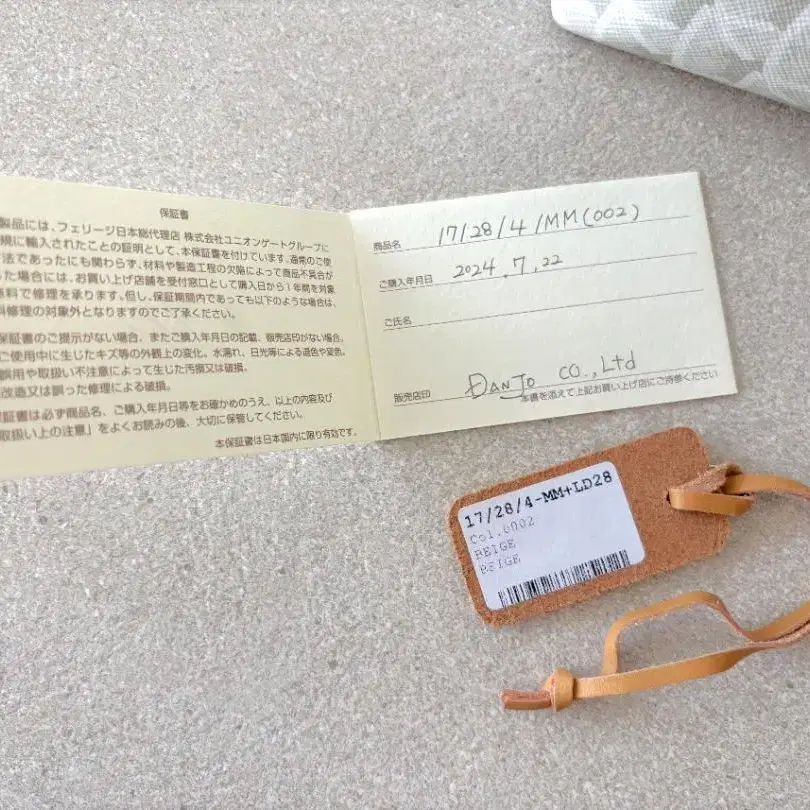 保証書
製品には、フェリージ日本総代理店 株式会社ユニオンゲートグループに
規に輸入されたことの証明として、本保証書を付けています。通常のご使
法であったにも関わらず、材料や製造工程の欠陥によって商品不具合が
た場合には、お買い上げ店舗を受付窓口として購入日から1年間を対象
料で修理を承ります。但し、保証期間内であっても以下のような場合は、
修理の対象外となりますのでご了承ください。
保証書のご提示がない場合、またご購入年月日の記載、販売店印がない場合。
ご使用中に生じたキズ等の外観上の変化。水濡れ、日光等による退色や変色。
誤用や取扱い不注意によって生じた汚損又は破損。
改造又は誤った修理による破損。
保証書は必ず商品名、ご購入年月日等をお確かめのうえ、以上の内容及び
取扱い上の注意」をよくお読みの後、大切に保管してください。
本保証書は日本国内に限り有効です。
商品名 17/28/4/MM(002)
ご購入年月日 2024.7.22
ご氏名
販売店印 DANJO CO.,Ltd
本書を添えて上記お買い上げ店にご持参ください
17/28/4-MM+LD28
Col.0002
BEIGE
BEIGE